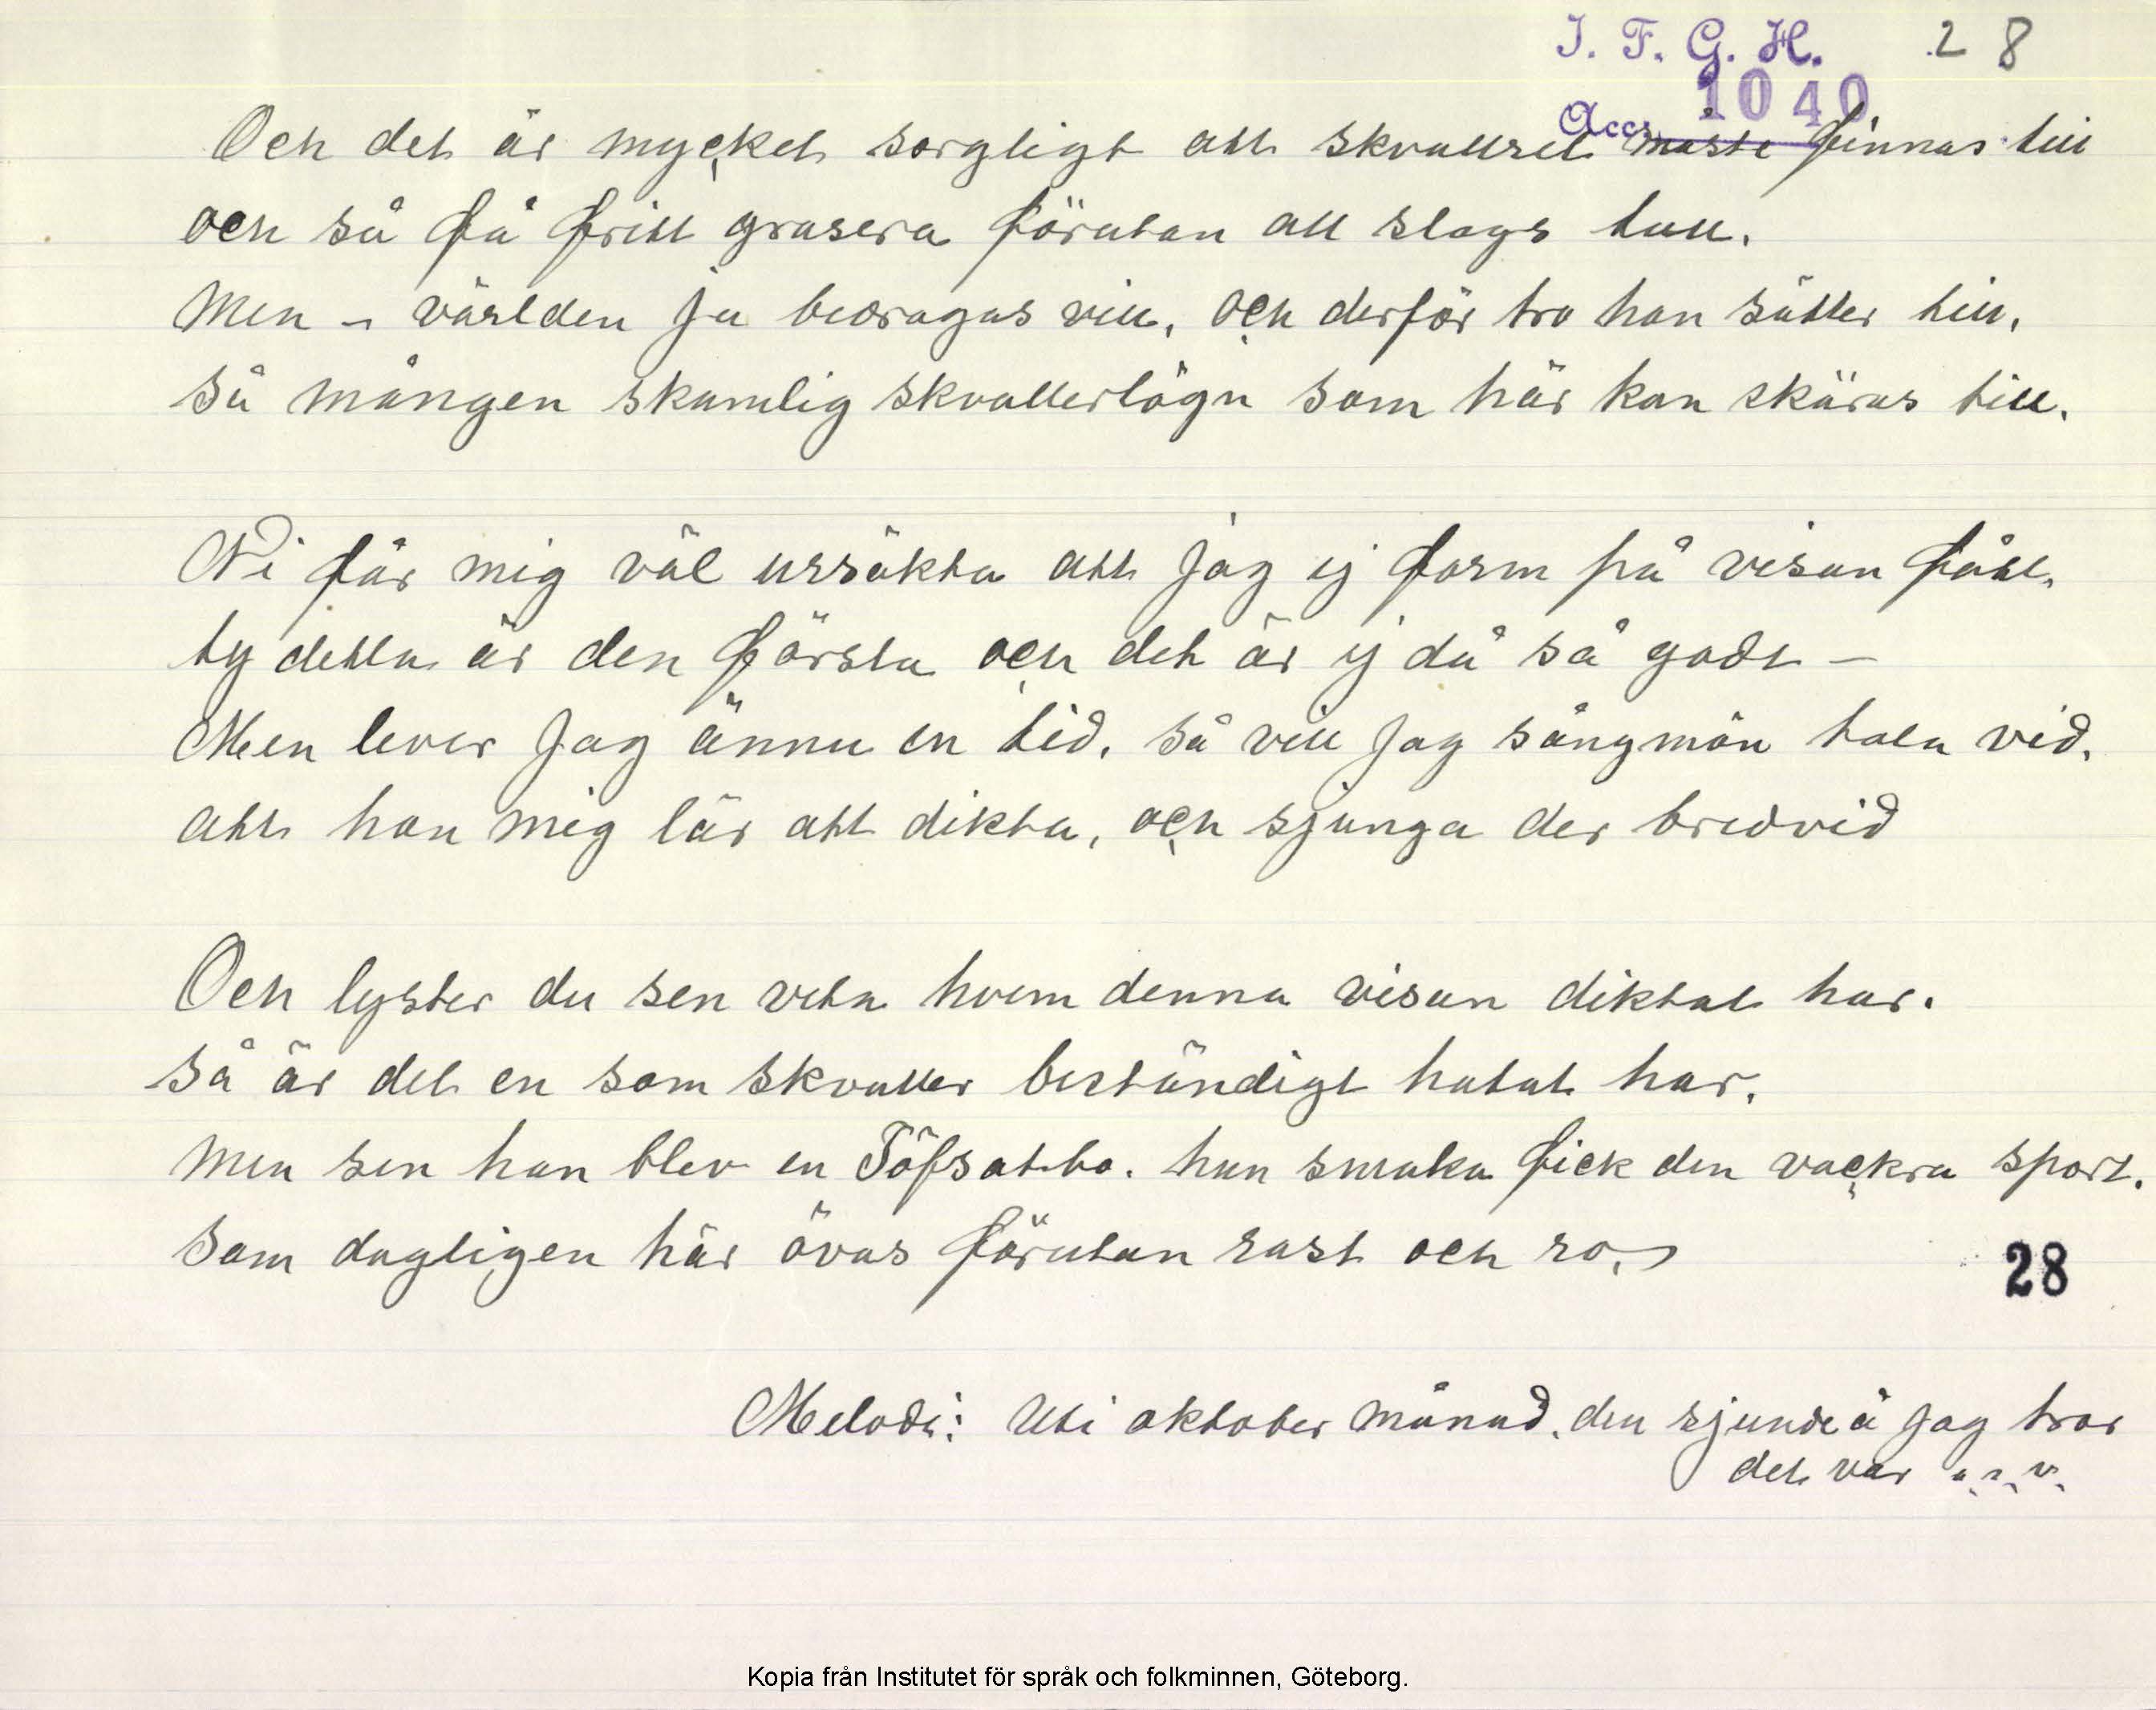 I. F. G. H. 28
Acc. 1040
Och det är mycket sorgligt att skvallret måste finnas till
och så få fritt grasera förutan all slags tull.
Men - världen ju bedragas vill, och derför tro han sätter till,
så mången skamlig skvallerlögn som här kan skäras till.
Ni får mig väl ursäkta att jag ej form på visan fått,
ty detta är den första och det är ej då så godt -
Men lever jag ännu en tid, så vill jag sångmön tala vid,
att hon mig lär att dikta, och sjunga der bredvid
Och lyster du sen veta hvem denna visan diktat har.
så är det en som skvaller beständigt hatat har.
Men sen han blev en Töfsatbo. han smaka fick den vackra sport.
Som dagligen här övas förutan rast och ro.
28
Melodi: Uti oktober månad, den sjunde å jag tror
det var o. s. v.
Kopia från Institutet för språk och folkminnen, Göteborg.